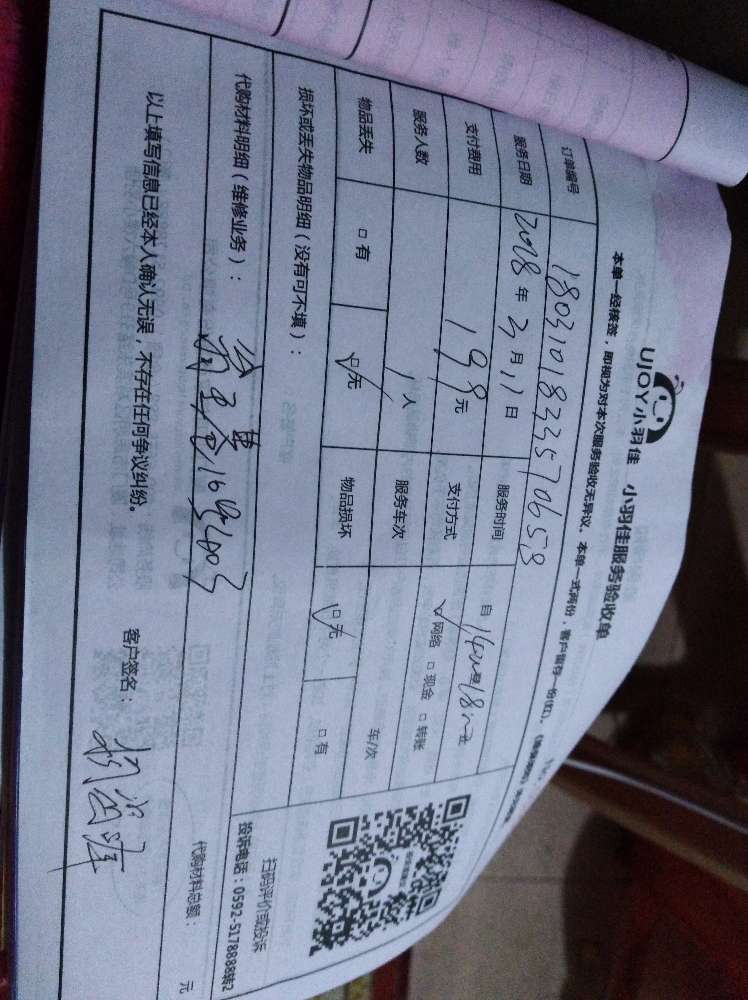 UJOY小羽佳 小羽佳服务验收单
本单一经核签，即视为对本次服务验收无异议。本单一式两份，客户留存一份(红)。
订单编号 1803101833570658
服务日期 2018年3月11日 服务时间 自14:00至18:00止
支付费用 198元 支付方式 ☑网络 □现金 □转账
服务人数 1人 服务车次 车/次
物品丢失 □有 ☑无 物品损坏 ☑无 □有
损坏或丢失物品明细（没有可不填）：
扫码评价或投诉
投诉电话：0592-5178888转2
代购材料明细（维修业务）：
16号
代购材料总额： 元
以上填写信息已经本人确认无误，不存在任何争议纠纷。
客户签名：